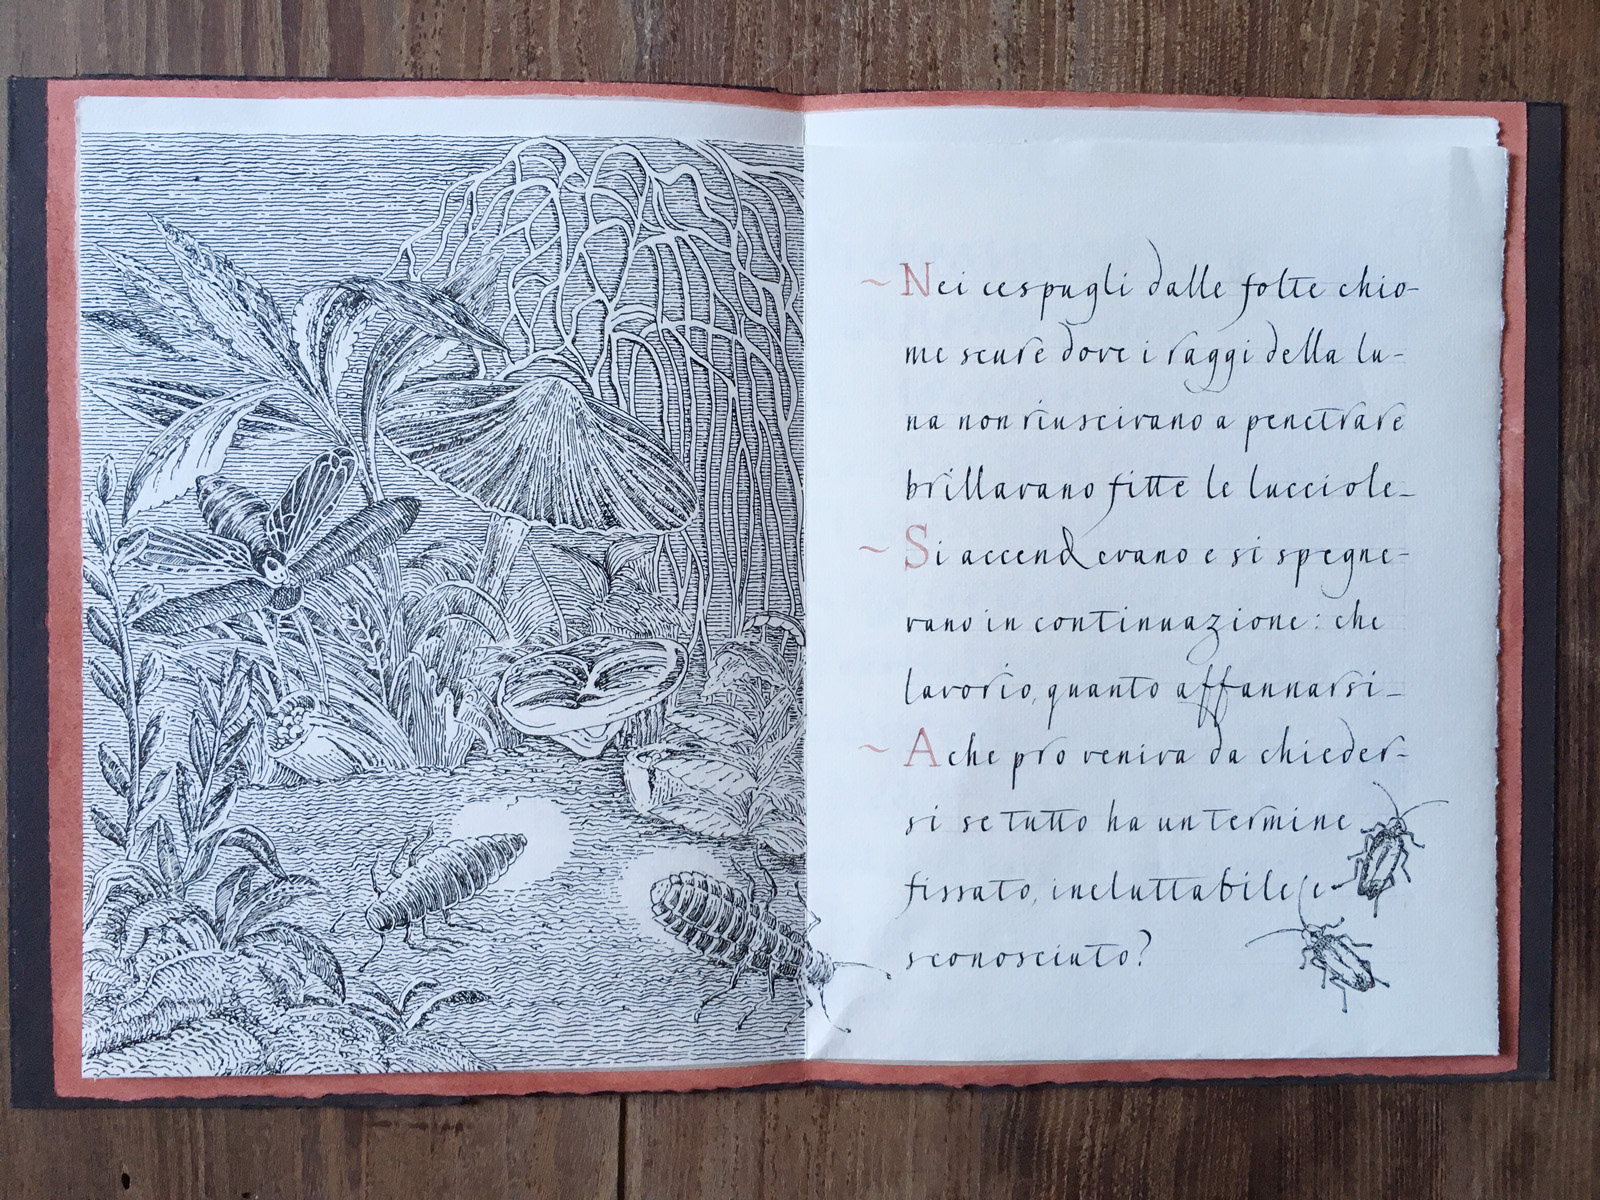 ~ Nei cespugli dalle folte chio-
me scure dove i raggi della lu-
na non riuscivano a penetrare
brillavano fitte le lucciole_
~ Si accendevano e si spegne-
vano in continuazione: che
lavorio, quanto affannarsi_
~ A che pro veniva da chieder-
si se tutto ha un termine
fissato, ineluttabile e
sconosciuto?